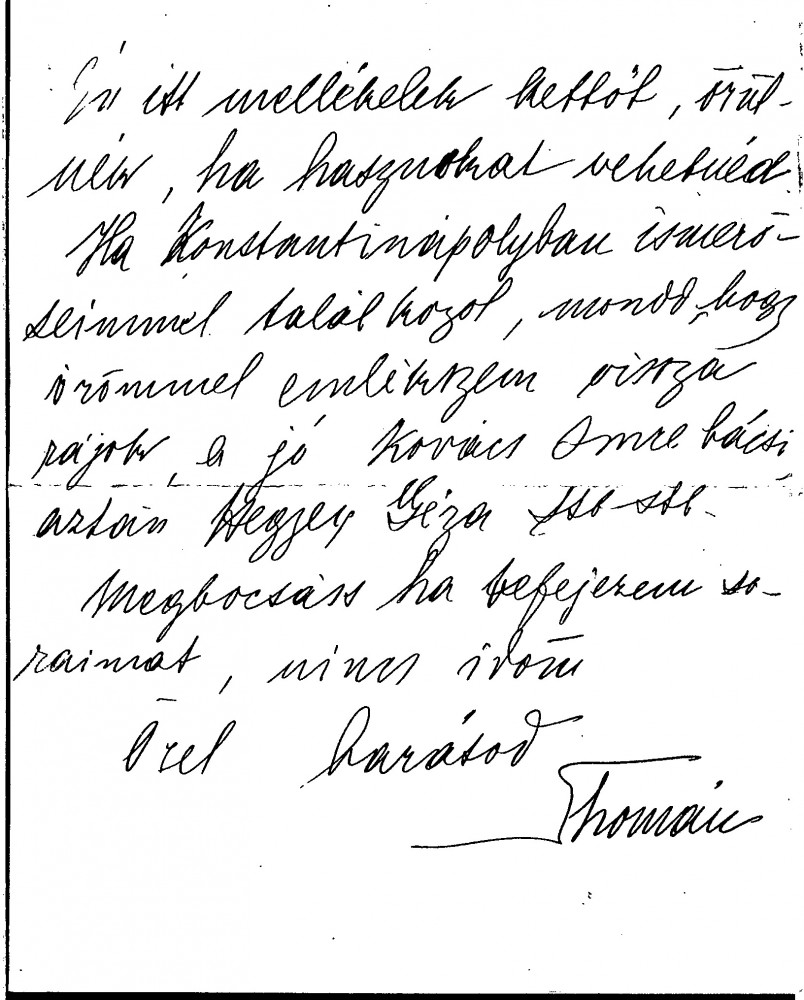 Én itt mellékelek kettőt, örül-
nék, ha hasznokat vehetnéd
Ha Konstantinápolyban ismerő-
seimmel találkozol, mondd, hogy
örömmel emlékszem vissza
rájok, a jó Kovács Imre bácsi
aztán Hegyey Géza stb stb.
Megbocsáss ha befejezem so-
raimat, nincs időm
Ölel barátod
Thomán